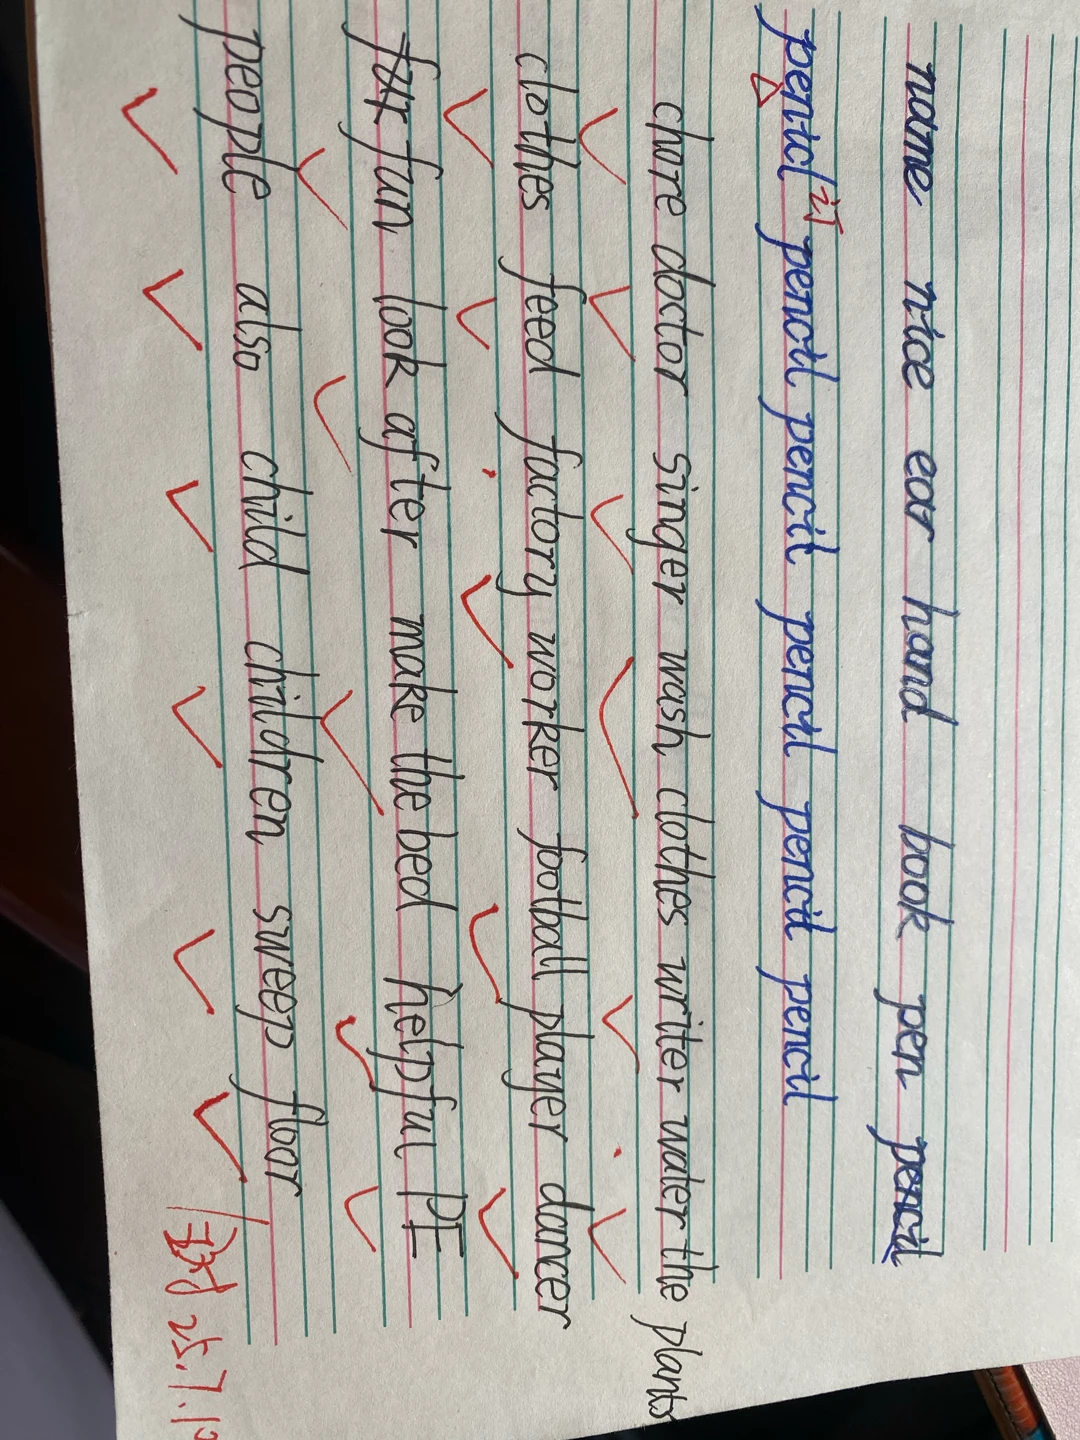 name nice ear hand book pen pencil
pencil 订 pencil pencil pencil pencil pencil
chore doctor singer wash clothes writer water the plants
clothes feed factory worker football player dancer
fun look after make the bed helpful PE
people also child children sweep floor
25.7.10